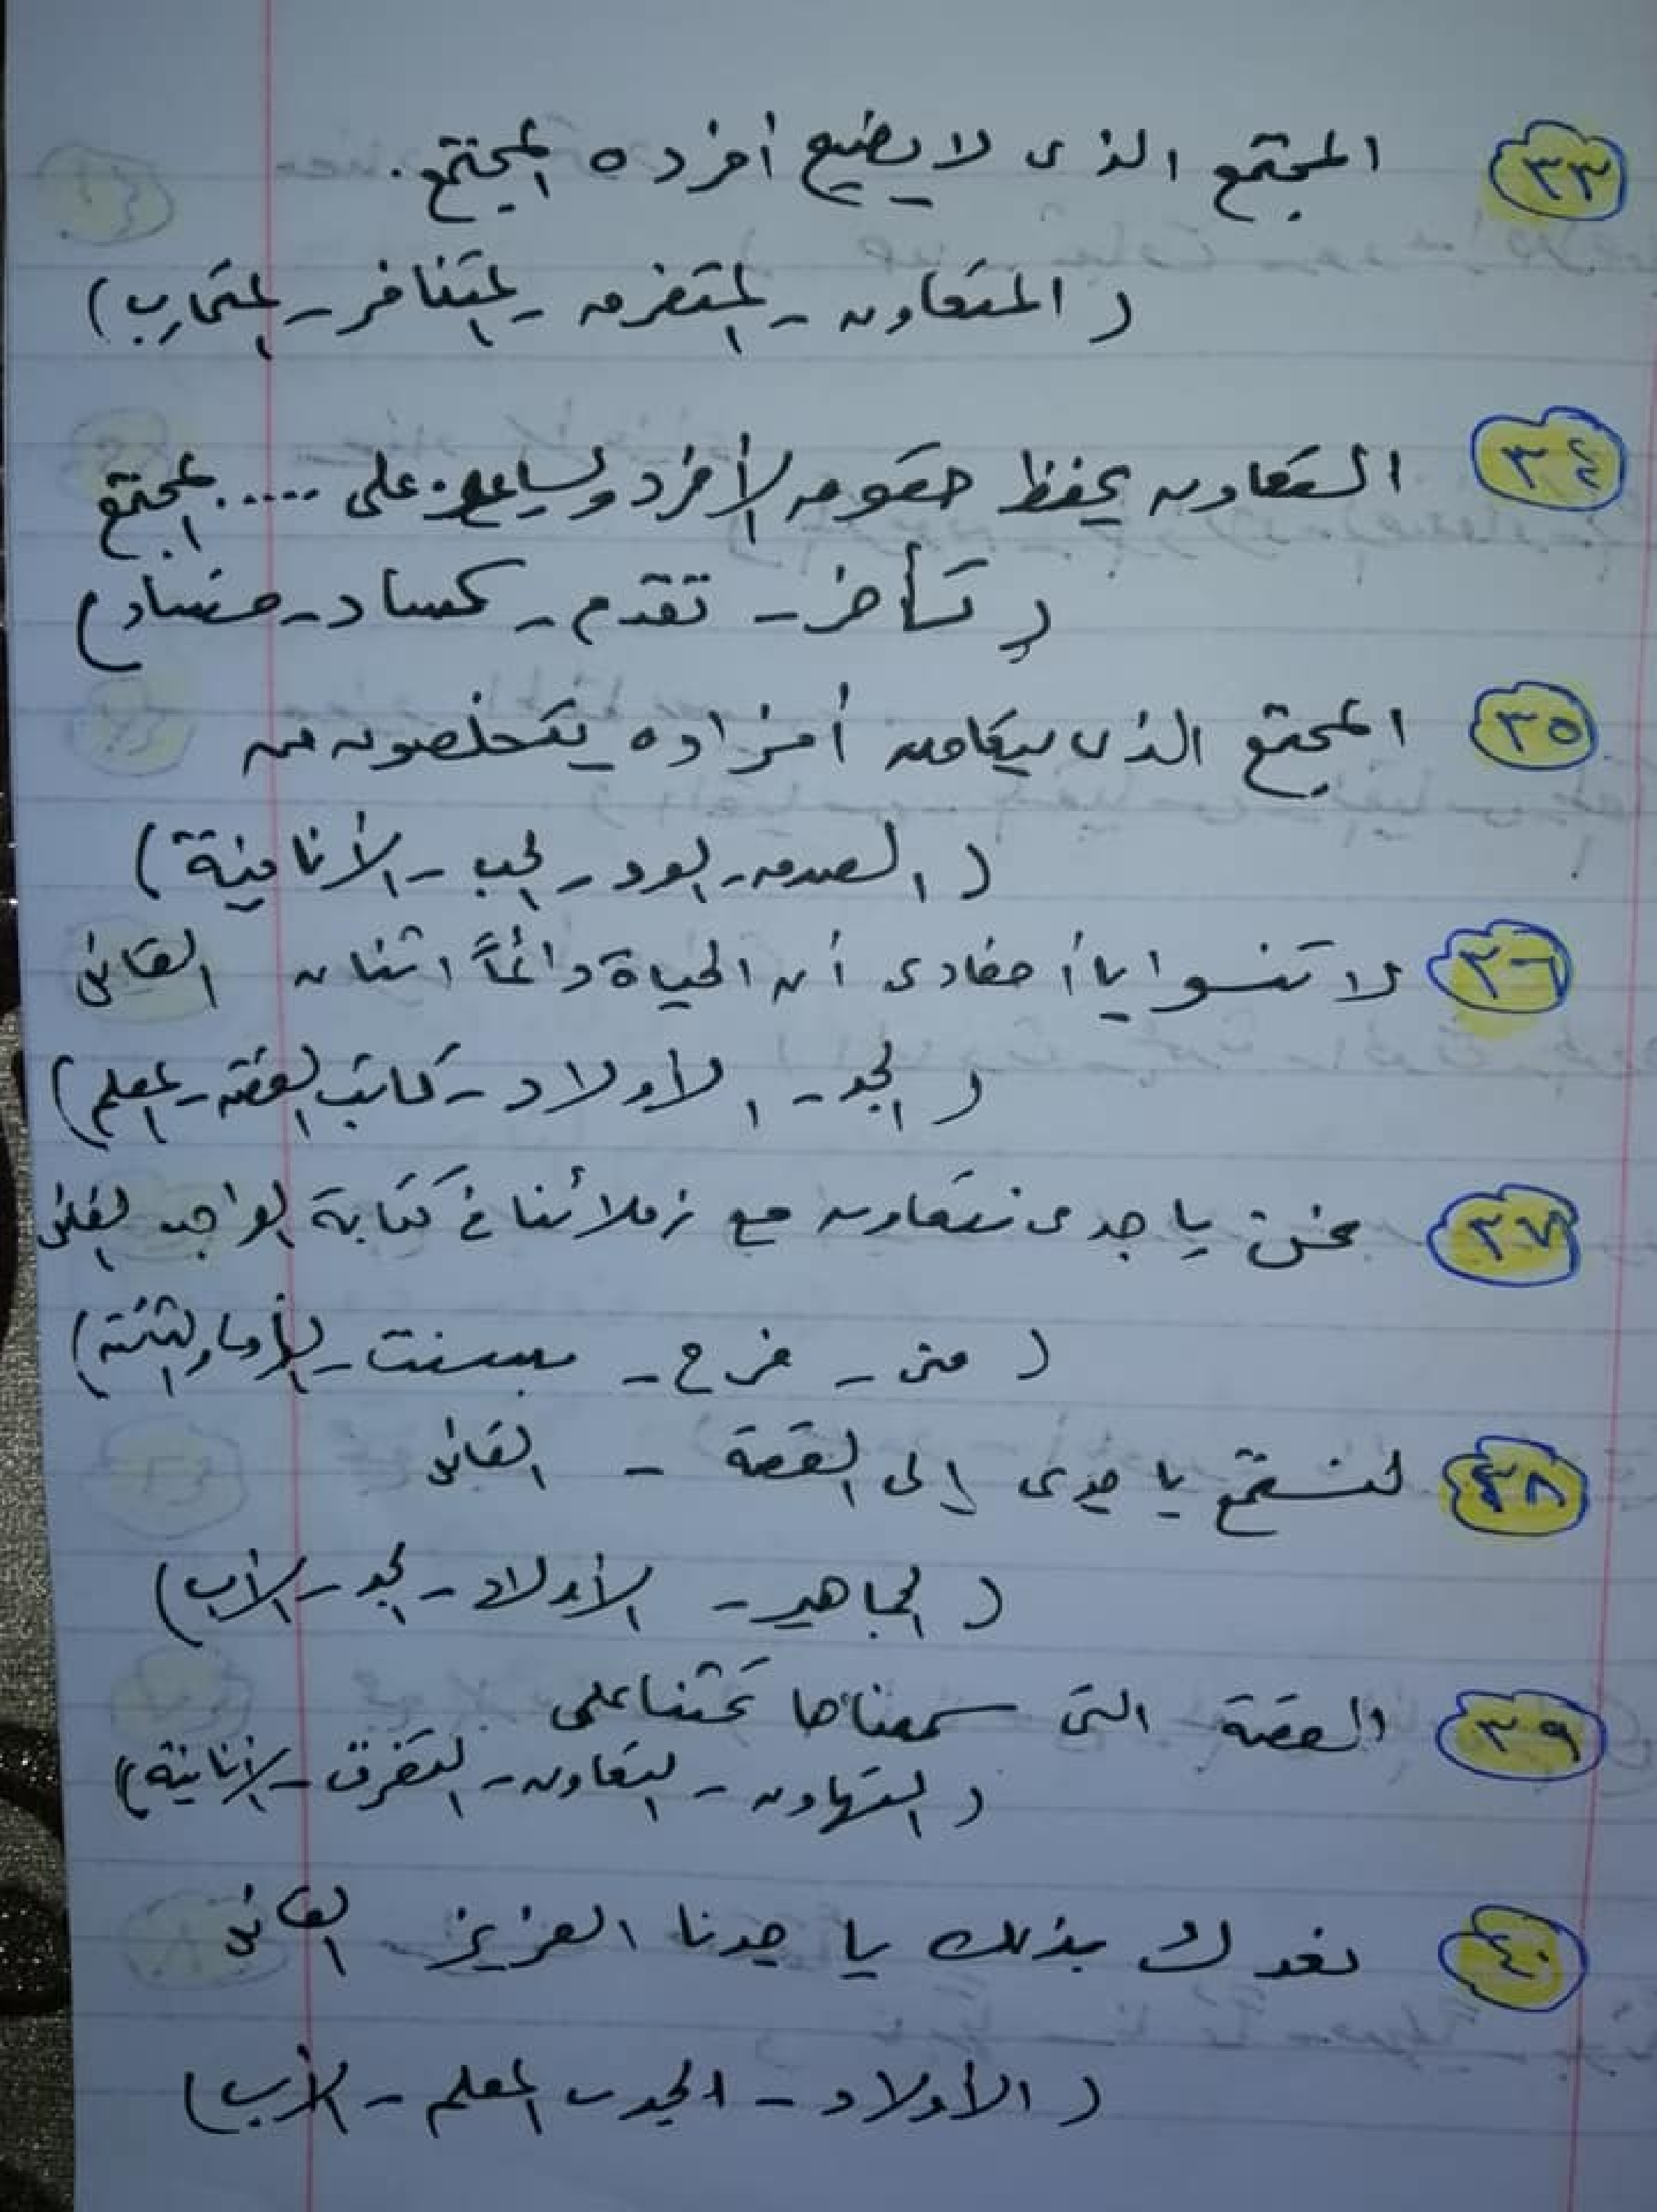 ٣٣ المجتمع الذى لا يضيع أفرده المجتمع.
( المتعاون - المتفرق - المتنافر - المتحارب )
٣٤ التعاون يحفظ حقوق الأفرد ويساعد على .... المجتمع
( تأخر - تقدم - كساد - فساد )
٣٥ المجتمع الذى يتعاون أفراده يتخلصون من
( الصدق - الود - الحب - الأنانية )
٣٦ لا تنسوا يا أحفادى أن الحياة دائماً اثنان القائل
( الجد - الأولاد - كاتب القصة - المعلم )
٣٧ نحن يا جدى نتعاون مع زملائنا فى كتابة الواجب القائل
( منى - فرح - بسنت - الأولى والثانية )
٣٨ لنستمع يا جدى إلى القصة - القائل
( الجماهير - الأولاد - الجد - الأب )
٣٩ القصة التى سمعناها تحثنا على
( التهاون - التعاون - التفرق - الأنانية )
٤٠ نعدك بذلك يا جدنا العزيز القائل
( الأولاد - الجد - المعلم - الأب )